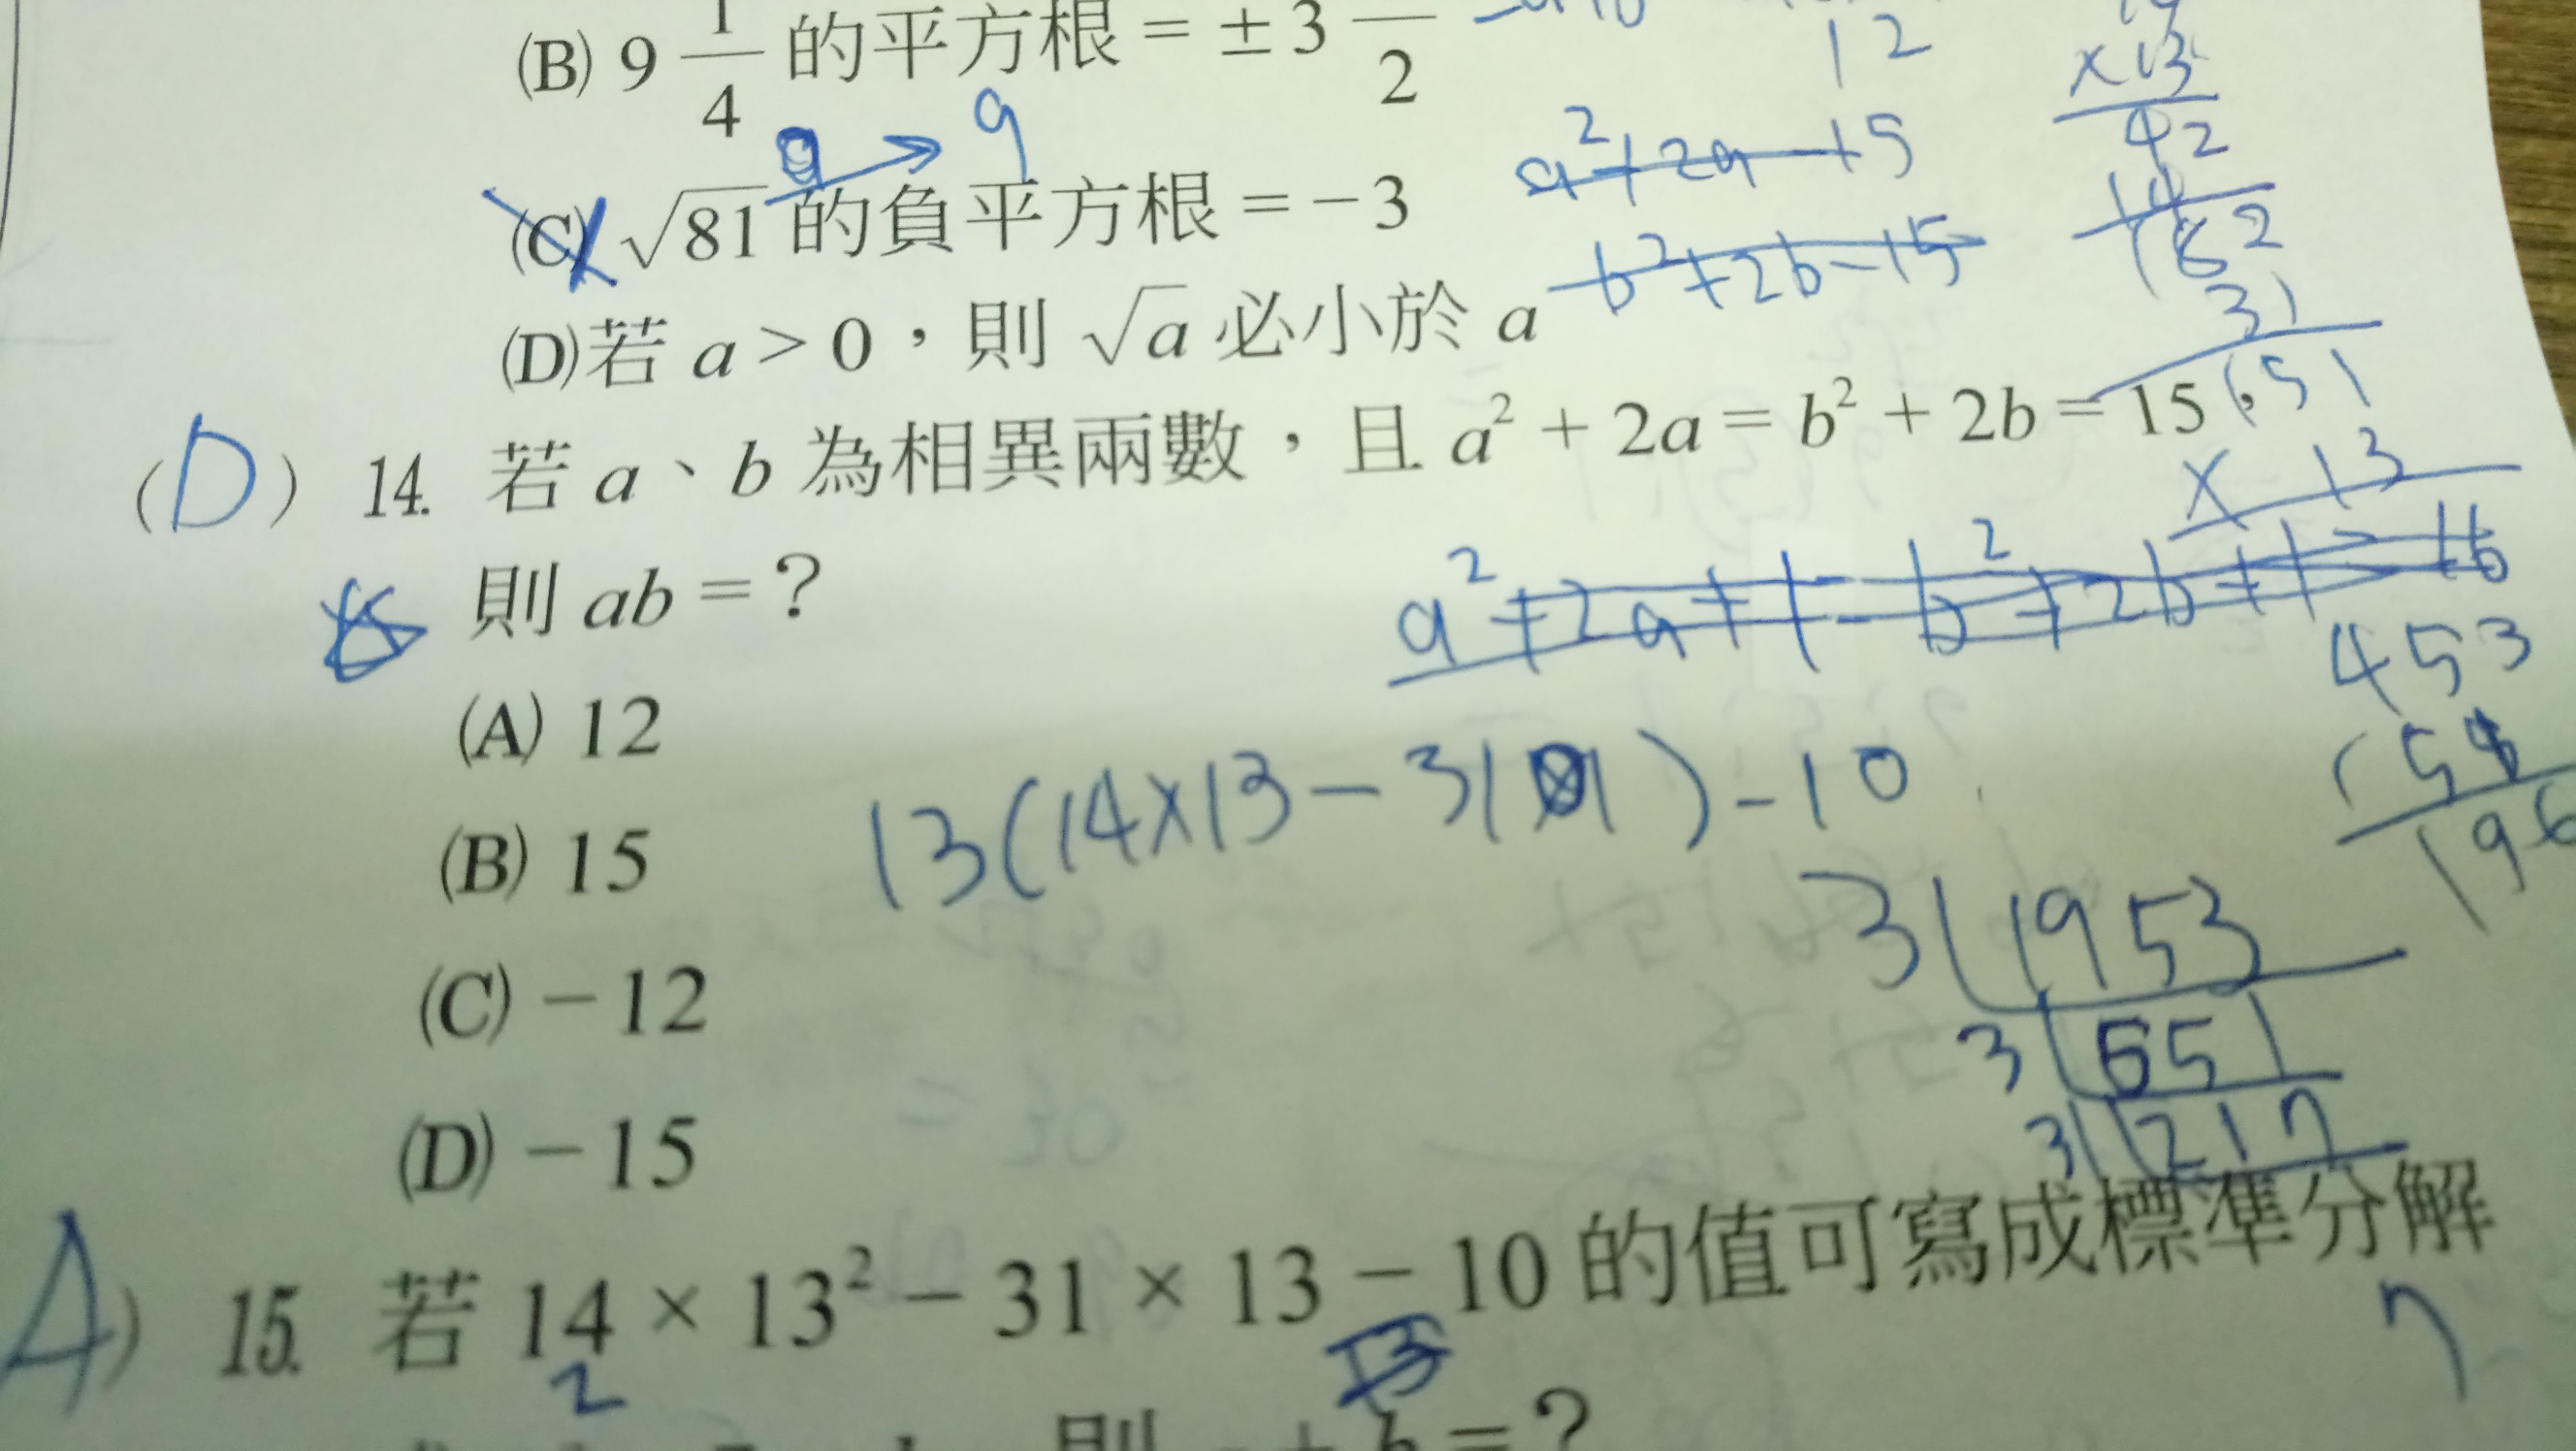 (B) 9 1/4 的平方根 = ± 3 /2
12
×13
42
9 → 9
(C) √81 的負平方根 = − 3
a²+2a−15
182
b²+2b−15
31
(D)若 a > 0，則 √a 必小於 a
151
(D) 14. 若 a、b 為相異兩數，且 a² + 2a = b² + 2b = 15，
× 13
則 ab = ?
a²+2a+1=b²+2b+1=16
453
(A) 12
13(14×13−31)−10
196
(B) 15
3 1953
(C) − 12
3 651
3 217
(D) − 15
A) 15. 若 14 × 13² − 31 × 13 − 10 的值可寫成標準分解
7
2 13
則 + b = ?